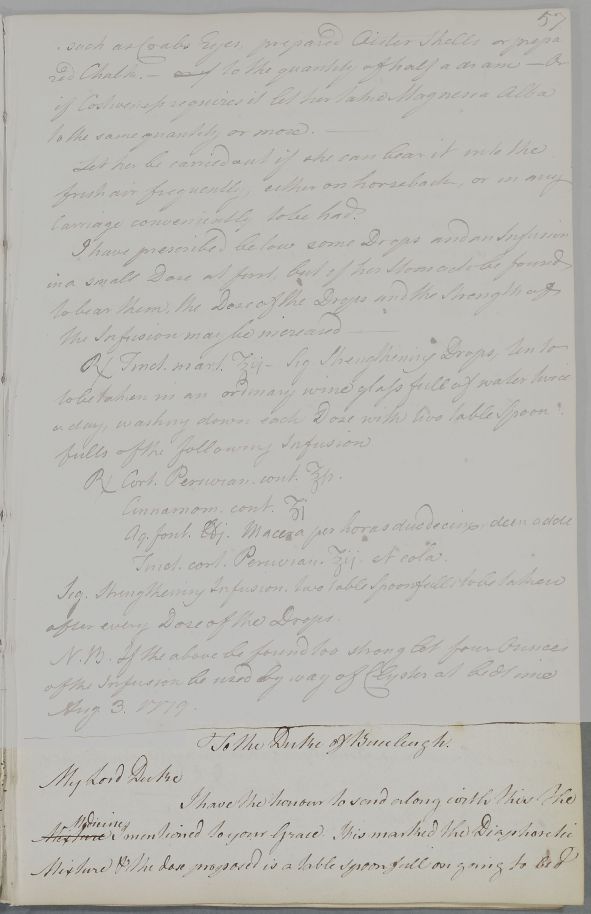 57
such as Crabs Eyes, prepared Oister Shells or prepa
red Chalk. — to the quantity of half a dram — Or
if Costiveness requires it let her take Magnesia Alba
to the same quantity or more. —
Let her be carried out if she can bear it into the
fresh air frequently, either on horseback, or in any
Carriage conveniently to be had.
I have prescribed below some Drops and an Infusion
in a small Dose at first, but if her Stomach be found
to bear them, the Dose of the Drops and the Strength of
the Infusion may be increased —
℞ Tinct. mart. ʒij — Sig. Strengthening Drops, ten to
to be taken in an ordinary wine glass full of water twice
a day, washing down each Dose with two table Spoon
fulls of the following Infusion
℞ Cort. Peruvian. cont.
Cinnamom. cont. ʒj
Aq. font. Macera per horas duodecim, dein adde
Tinct. cort. Peruvian. ʒij. et cola.
Sig. Strengthening Infusion. two table Spoonfulls to be taken
after every Dose of the Drops.
N.B. If the above be found too strong let four Ounces
of the Infusion be used by way of Clyster at bedtime
Aug. 3. 1779.
To the Duke of Buccleugh.
My Lord Duke
I have the honour to send along with this the
Medicines mentioned to your Grace. It is marked the Diaphoretic
Mixture & the dose proposed is a table spoonfull on going to bed